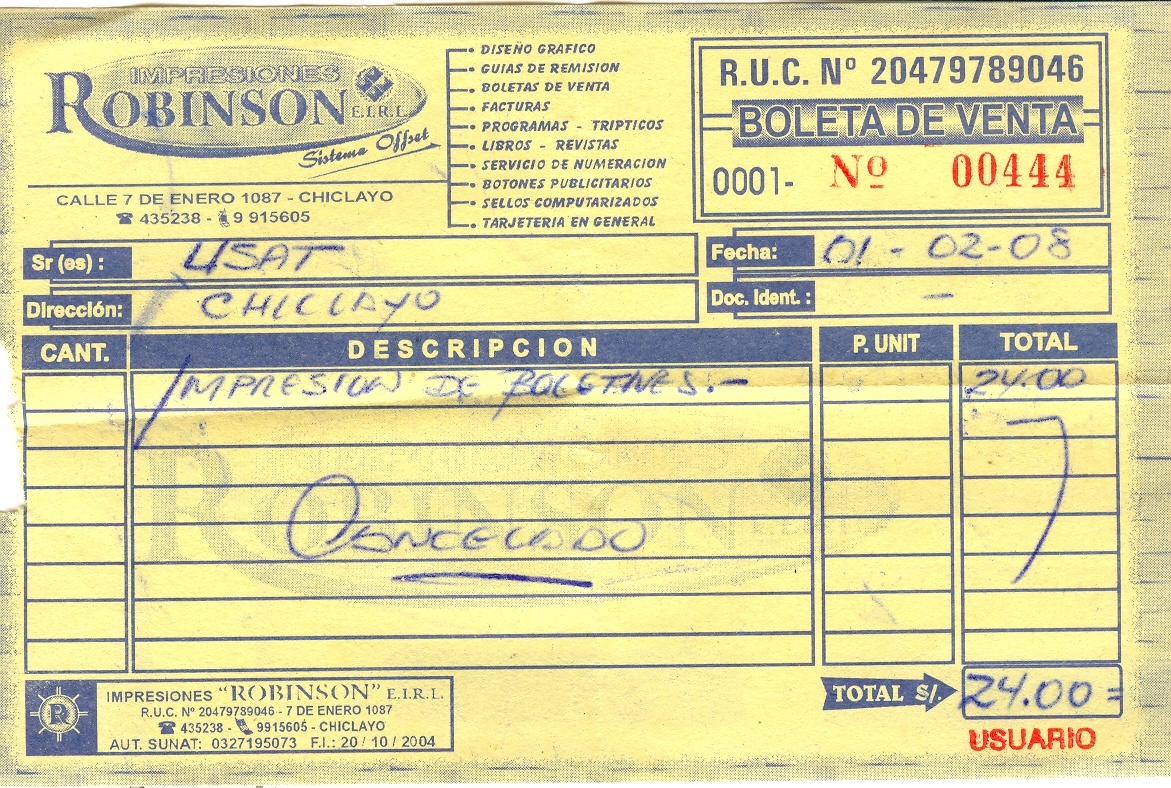 IMPRESIONES
ROBINSON E.I.R.L.
Sistema Offset
CALLE 7 DE ENERO 1087 - CHICLAYO
☎ 435238 - 9 915605
• DISEÑO GRAFICO
• GUIAS DE REMISION
• BOLETAS DE VENTA
• FACTURAS
• PROGRAMAS - TRIPTICOS
• LIBROS - REVISTAS
• SERVICIO DE NUMERACION
• BOTONES PUBLICITARIOS
• SELLOS COMPUTARIZADOS
• TARJETERIA EN GENERAL
R.U.C. Nº 20479789046
BOLETA DE VENTA
0001- Nº 00444
Sr (es) : USAT
Fecha: 01 - 02 - 08
Dirección: CHICLAYO
Doc. Ident. : -
CANT. DESCRIPCION P. UNIT TOTAL
IMPRESION DE BOLETINES.- 24.00
CANCELADO
IMPRESIONES "ROBINSON" E.I.R.L.
R.U.C. Nº 20479789046 - 7 DE ENERO 1087
☎ 435238 - 9915605 - CHICLAYO
AUT. SUNAT: 0327195073 F.I.: 20 / 10 / 2004
TOTAL S/. 24.00 =
USUARIO